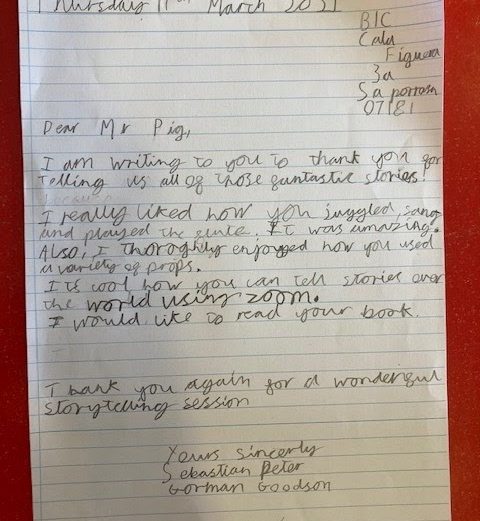 Thursday 11th March 2021
BIC
Cala
Figuera
3a
Sa porrasa
07181
Dear Mr Pig,
I am writing to you to thank you for
telling us all of those funtastic stories!
I really liked how you juggled, sang
and played the flute. It was amazing.
Also, I thoroghly enjoyed how you used
a variety of props.
Its cool how you can tell stories over
the world using zoom.
I would like to read your book.
Thank you again for a wonderful
storytelling session
Yours sincerly
Sebastian Peter
Gorman Goodson